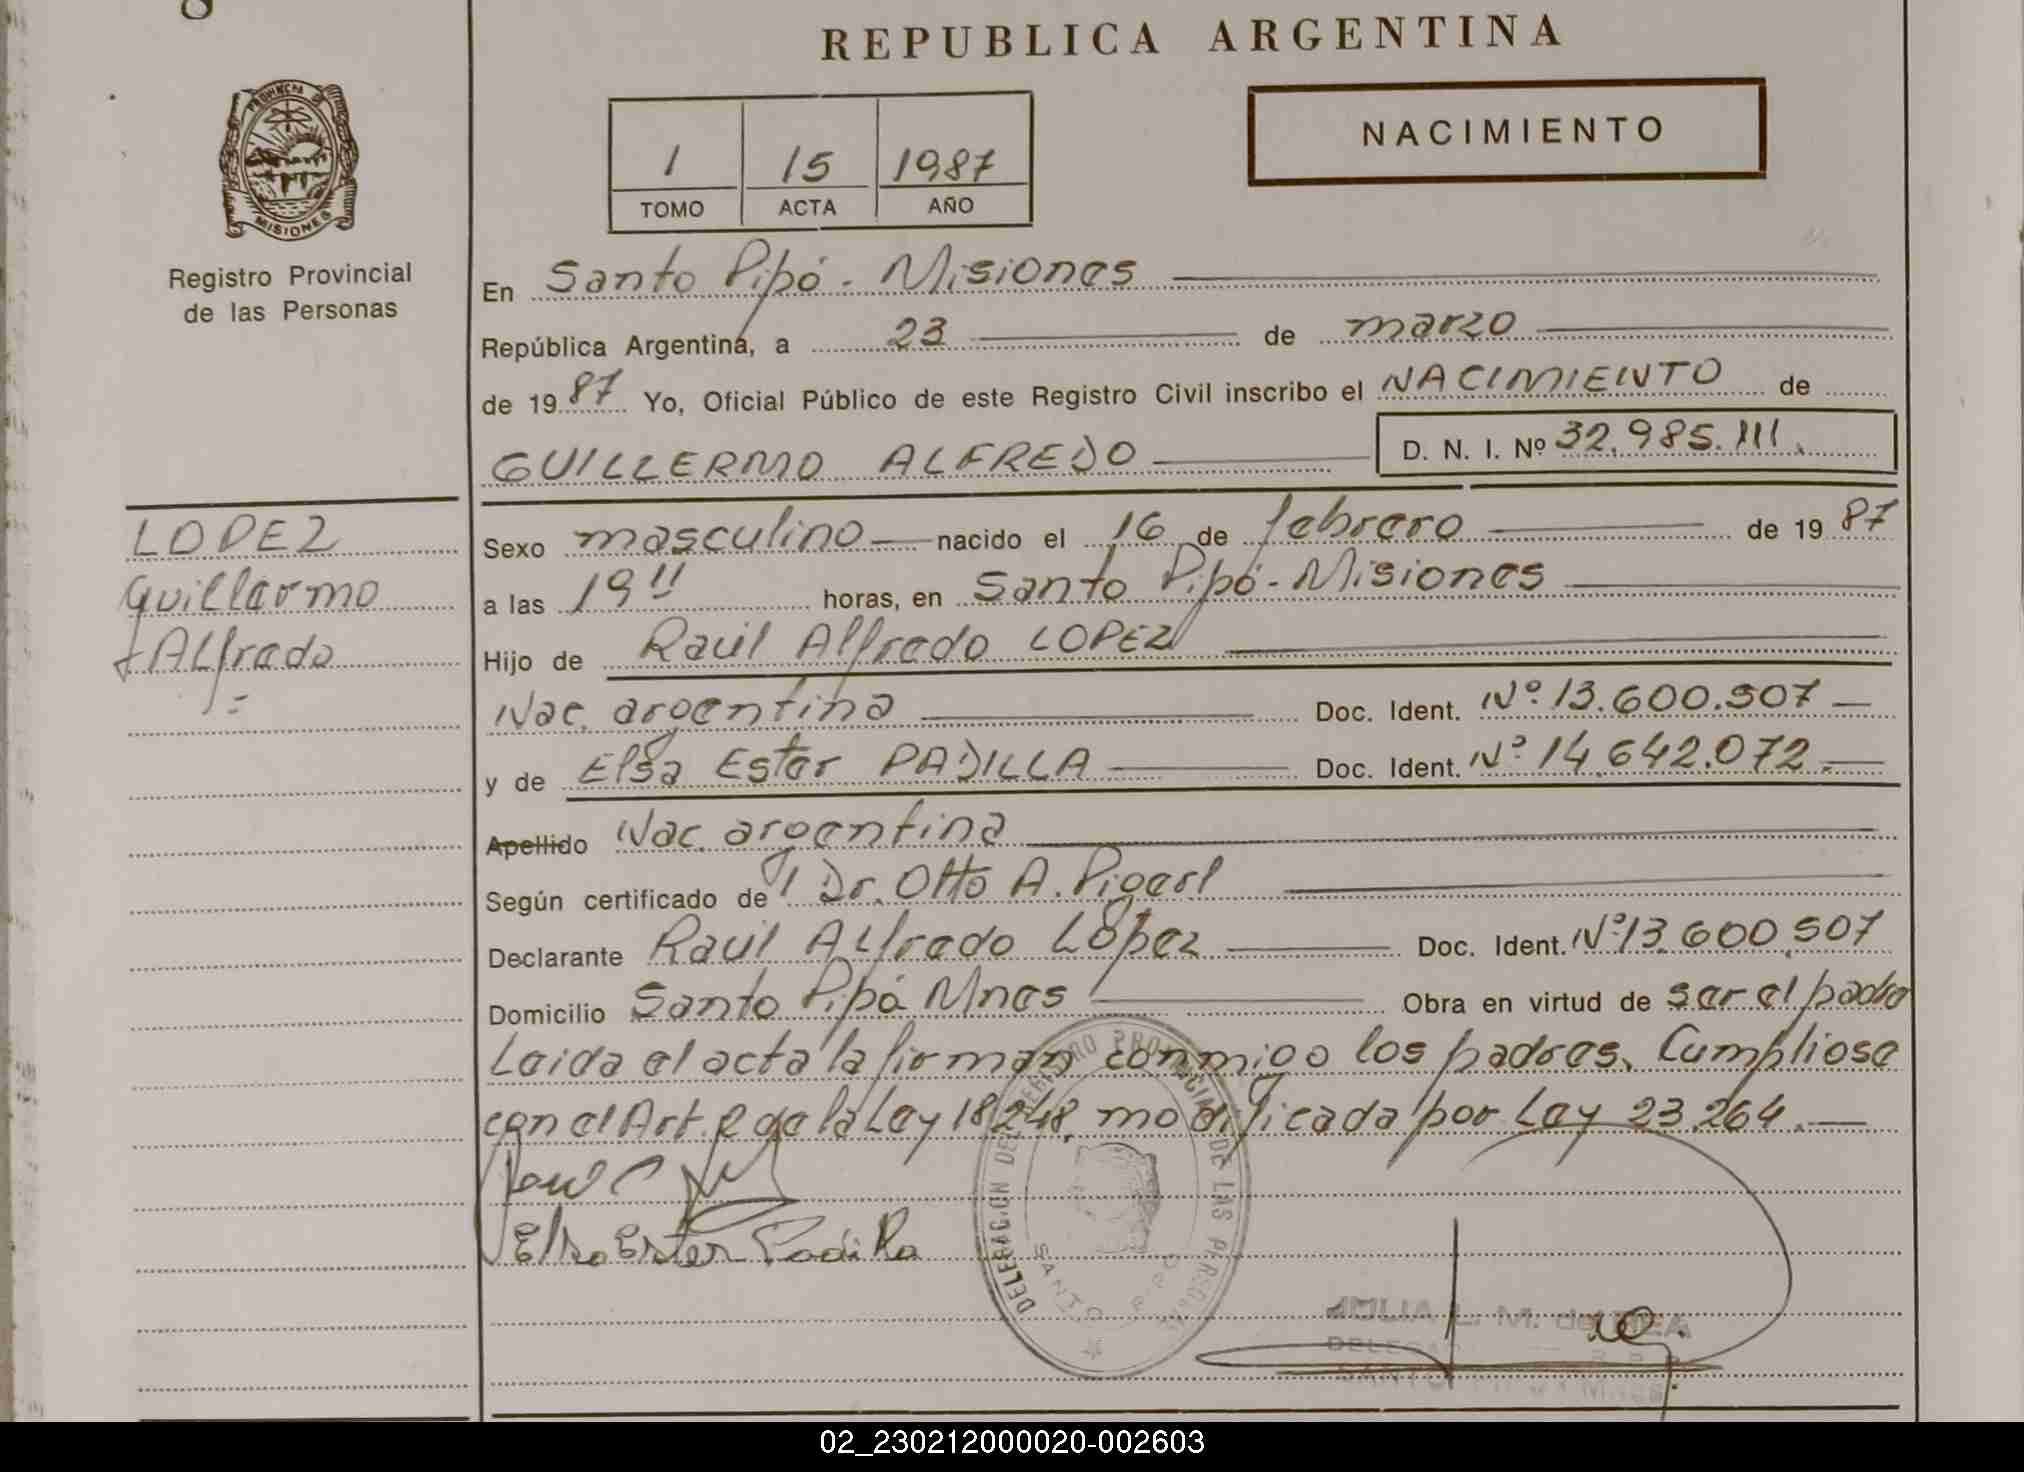 REPUBLICA ARGENTINA
PROVINCIA DE MISIONES
Registro Provincial
de las Personas
1 15 1987
TOMO ACTA AÑO
NACIMIENTO
En Santo Pipó - Misiones
República Argentina, a 23 de marzo
de 1987 Yo, Oficial Público de este Registro Civil inscribo el NACIMIENTO de
GUILLERMO ALFREDO D. N. I. Nº 32.985.111.
LOPEZ
Guillermo
Alfredo
Sexo masculino nacido el 16 de febrero de 1987
a las 19 horas, en Santo Pipó - Misiones
Hijo de Raúl Alfredo LOPEZ
Nac. argentina Doc. Ident. Nº 13.600.507
y de Elsa Ester PADILLA Doc. Ident. Nº 14.642.072.
Apellido Nac. argentina
Según certificado de Dr. Otto A.
Declarante Raúl Alfredo López Doc. Ident. Nº 13.600.507
Domicilio Santo Pipó Mnes Obra en virtud de ser el padre
Leida el acta la firman conmigo los padres. Cumpliose
con el Art. 2 de la Ley 18248, modificada por Ley 23.264.
Elsa Ester Padilla
DELEGACION DEL REGISTRO PROVINCIAL DE LAS PERSONAS
SANTO PIPO
JULIA L. M. de
02_230212000020-002603